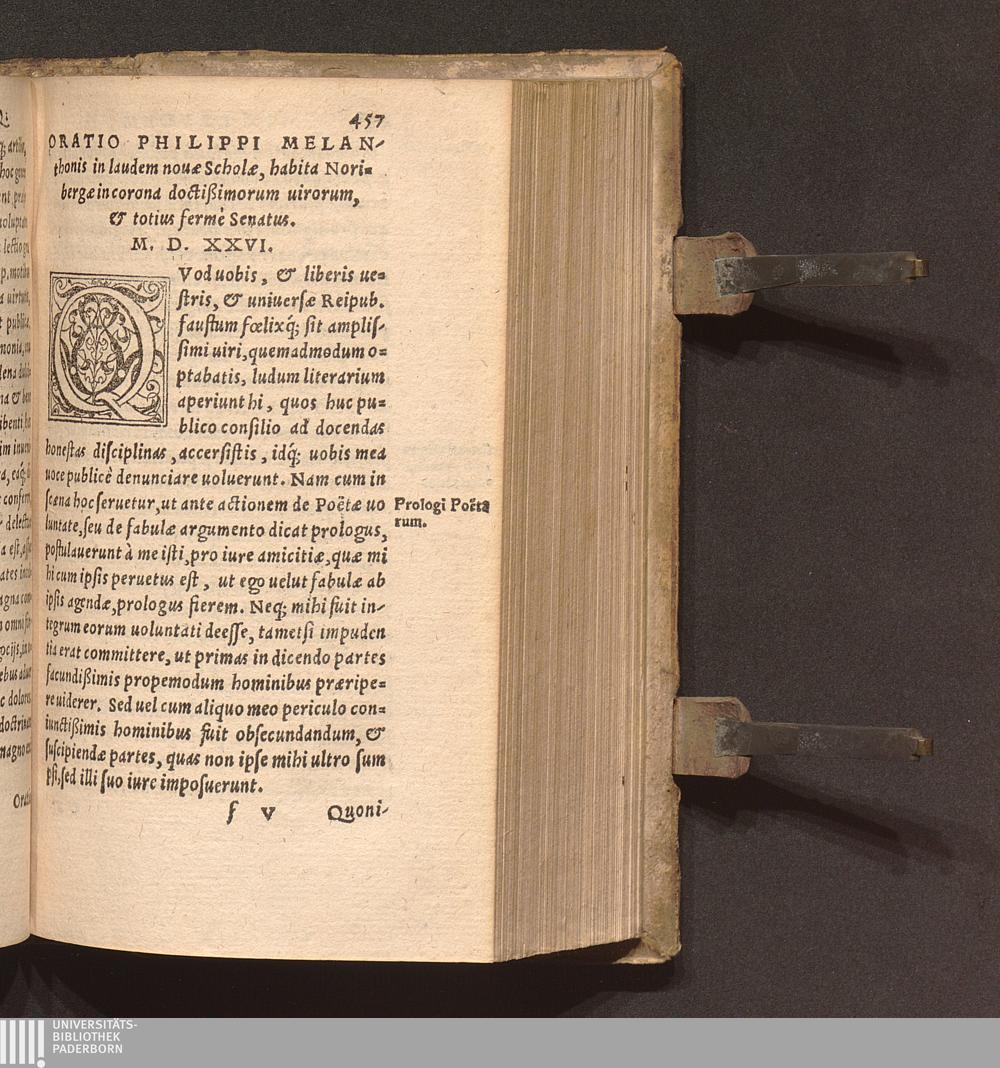 457
ORATIO PHILIPPI MELAN-
thonis in laudem nouæ Scholæ, habita Nori=
bergæ in corona doctißimorum uirorum,
& totius fermè Senatus.
M. D. XXVI.
QVod uobis, & liberis ue=
ſtris, & uniuerſæ Reipub.
fauſtum fœlixq́; ſit ampliſ-
ſimi uiri, quemadmodum o=
ptabatis, ludum literarium
aperiunt hi, quos huc pu-
blico conſilio ad docendas
honeſtas diſciplinas, accerſiſtis, idq́; uobis mea
uoce publicè denunciare uoluerunt. Nam cum in
ſcæna hoc ſeruetur, ut ante actionem de Poëtæ uo
luntate, ſeu de fabulæ argumento dicat prologus,
poſtulauerunt à me iſti, pro iure amicitiæ, quæ mi
hi cum ipſis peruetus eſt, ut ego uelut fabulæ ab
ipſis agendæ, prologus fierem. Neq; mihi fuit in-
tegrum eorum uoluntati deeſſe, tametſi impuden
tia erat committere, ut primas in dicendo partes
facundißimis propemodum hominibus præripe=
re uiderer. Sed uel cum aliquo meo periculo con=
iunctißimis hominibus fuit obſecundandum, &
ſuſcipiendæ partes, quas non ipſe mihi ultro ſum
pſi, ſed illi ſuo iure impoſuerunt.
f v Quoni-
Prologi Poëta
rum.
UNIVERSITÄTS-
BIBLIOTHEK
PADERBORN